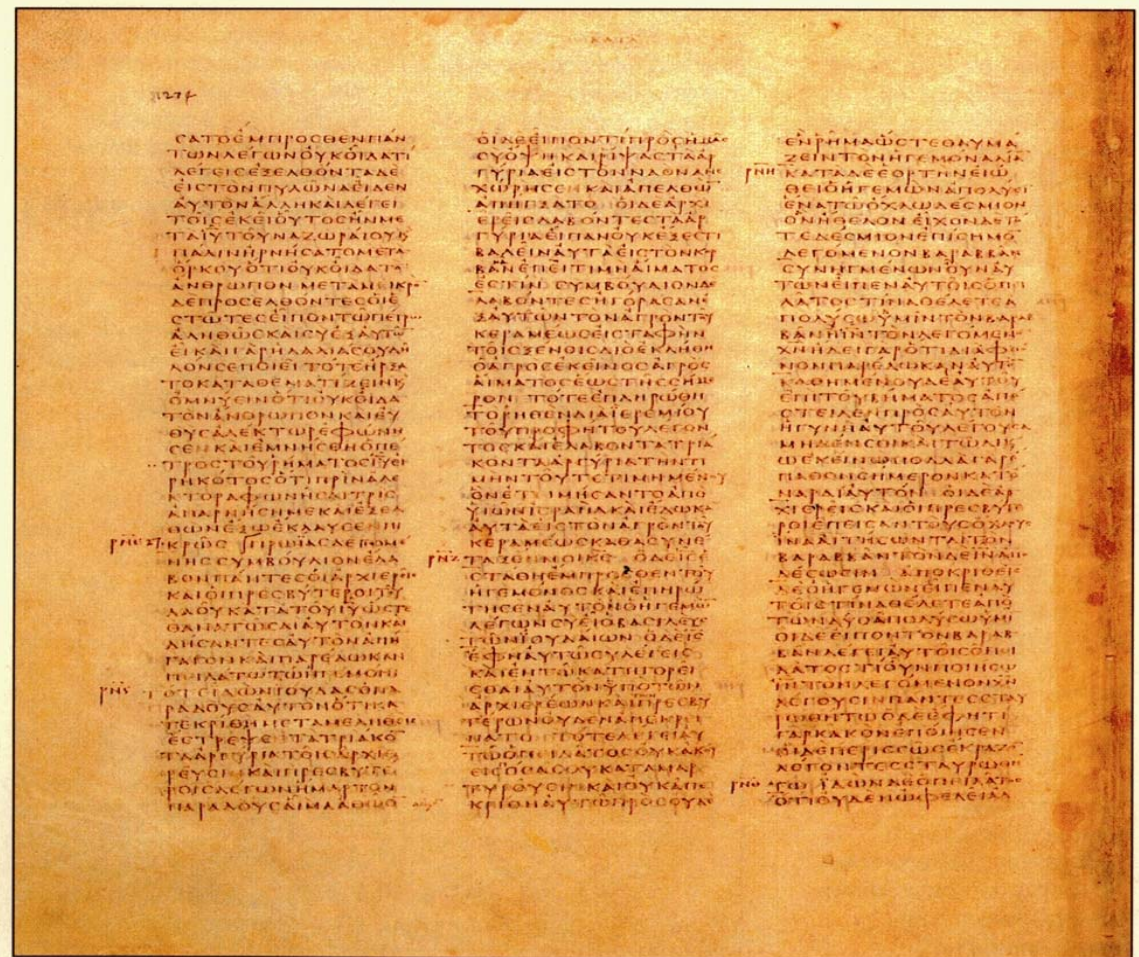 ΚΑΤΑ
1274
ϹΑΤΟΕΜΠΡΟϹΘΕΝΠΑΝ
ΤΩΝΛΕΓΩΝΟΥΚΟΙΔΑΤΙ
ΛΕΓΕΙϹΕΞΕΛΘΟΝΤΑΔΕ
ΕΙϹΤΟΝΠΥΛΩΝΑΕΙΔΕΝ
ΑΥΤΟΝΑΛΛΗΚΑΙΛΕΓΕΙ
ΤΟΙϹΕΚΕΙΟΥΤΟϹΗΝΜΕ
ΤΑΙΥΤΟΥΝΑΖΩΡΑΙΟΥΚ
ΠΑΛΙΝΗΡΝΗϹΑΤΟΜΕΤΑ
ΟΡΚΟΥΟΤΙΟΥΚΟΙΔΑΤΟ
ΑΝΘΡΩΠΟΝΜΕΤΑΜΙΚΡΟ
ΔΕΠΡΟϹΕΛΘΟΝΤΕϹΟΙΕ
ϹΤΩΤΕϹΕΙΠΟΝΤΩΠΕΤΡΩ
ΑΛΗΘΩϹΚΑΙϹΥΕΞΑΥΤΩ
ΕΙΚΑΙΓΑΡΗΛΑΛΙΑϹΟΥΔΗ
ΛΟΝϹΕΠΟΙΕΙΤΟΤΕΗΡΞΑ
ΤΟΚΑΤΑΘΕΜΑΤΙΖΕΙΝΚ
ΟΜΝΥΕΙΝΟΤΙΟΥΚΟΙΔΑ
ΤΟΝΑΝΘΡΩΠΟΝΚΑΙΕΥ
ΘΥϹΑΛΕΚΤΩΡΕΦΩΝΗ
ϹΕΝΚΑΙΕΜΝΗϹΘΗΟΠΕ
ΤΡΟϹΤΟΥΡΗΜΑΤΟϹΙΥΕΙ
ΡΗΚΟΤΟϹΟΤΙΠΡΙΝΑΛΕ
ΚΤΟΡΑΦΩΝΗϹΑΙΤΡΙϹ
ΑΠΑΡΝΗϹΗΜΕΚΑΙΕΞΕΛ
ΘΩΝΕΞΩΕΚΛΑΥϹΕΝΠΙ
ΚΡΩϹ ΠΡΩΙΑϹΔΕΓΕΝΟΜΕ
ΝΗϹϹΥΜΒΟΥΛΙΟΝΕΛΑ
ΒΟΝΠΑΝΤΕϹΟΙΑΡΧΙΕΡΕΙϹ
ΚΑΙΟΙΠΡΕϹΒΥΤΕΡΟΙΤΟΥ
ΛΑΟΥΚΑΤΑΤΟΥΙΥΩϹΤΕ
ΘΑΝΑΤΩϹΑΙΑΥΤΟΝΚΑΙ
ΔΗϹΑΝΤΕϹΑΥΤΟΝΑΠΗ
ΓΑΓΟΝΚΑΙΠΑΡΕΔΩΚΑΝ
ΠΕΙΛΑΤΩΤΩΗΓΕΜΟΝΙ
ΤΟΤΕΙΔΩΝΙΟΥΔΑϹΟΠΑ
ΡΑΔΟΥϹΑΥΤΟΝΟΤΙΚΑ
ΤΕΚΡΙΘΗΜΕΤΑΜΕΛΗΘΕΙϹ
ΕϹΤΡΕΨΕΤΑΤΡΙΑΚΟ
ΤΑΑΡΓΥΡΙΑΤΟΙϹΑΡΧΙΕ
ΡΕΥϹΙΚΑΙΠΡΕϹΒΥΤΕ
ΡΟΙϹΛΕΓΩΝΗΜΑΡΤΟΝ
ΠΑΡΑΔΟΥϹΑΙΜΑΑΘΩΟ
ΟΙΔΕΕΙΠΟΝΤΙΠΡΟϹΗΜΑϹ
ϹΥΟΨΗΚΑΙΡΙΨΑϹΤΑΑΡ
ΓΥΡΙΑΕΙϹΤΟΝΝΑΟΝΑΝΕ
ΧΩΡΗϹΕΝΚΑΙΑΠΕΛΘΩ
ΑΠΗΓΞΑΤΟ ΟΙΔΕΑΡΧΙ
ΕΡΕΙϹΛΑΒΟΝΤΕϹΤΑΑΡ
ΓΥΡΙΑΕΙΠΑΝΟΥΚΕΞΕϹΤΙ
ΒΑΛΕΙΝΑΥΤΑΕΙϹΤΟΝΚΟΡ
ΒΑΝΕΠΕΙΤΙΜΗΑΙΜΑΤΟϹ
ΕϹΤΙΝ ϹΥΜΒΟΥΛΙΟΝΔΕ
ΛΑΒΟΝΤΕϹΗΓΟΡΑϹΑΝΕ
ΞΑΥΤΩΝΤΟΝΑΓΡΟΝΤΟΥ
ΚΕΡΑΜΕΩϹΕΙϹΤΑΦΗΝ
ΤΟΙϹΞΕΝΟΙϹΔΙΟΕΚΛΗΘΗ
ΟΑΓΡΟϹΕΚΕΙΝΟϹΑΓΡΟϹ
ΑΙΜΑΤΟϹΕΩϹΤΗϹϹΗΜΕ
ΡΟΝ ΤΟΤΕΕΠΛΗΡΩΘΗ
ΤΟΡΗΘΕΝΔΙΑΙΕΡΕΜΙΟΥ
ΤΟΥΠΡΟΦΗΤΟΥΛΕΓΟΝ
ΤΟϹΚΑΙΕΛΑΒΟΝΤΑΤΡΙΑ
ΚΟΝΤΑΑΡΓΥΡΙΑΤΗΝΤΙ
ΜΗΝΤΟΥΤΕΤΙΜΗΜΕΝΟΥ
ΟΝΕΤΙΜΗϹΑΝΤΟΑΠΟ
ΥΙΩΝΙϹΡΑΗΛΚΑΙΕΔΩΚΑ
ΑΥΤΑΕΙϹΤΟΝΑΓΡΟΝΤΟΥ
ΚΕΡΑΜΕΩϹΚΑΘΑϹΥΝΕ
ΤΑΞΕΝΜΟΙΚϹ ΟΔΕΙϹΕ
ϹΤΑΘΗΕΜΠΡΟϹΘΕΝΤΟΥ
ΗΓΕΜΟΝΟϹΚΑΙΕΠΗΡΩ
ΤΗϹΕΝΑΥΤΟΝΟΗΓΕΜΩ
ΛΕΓΩΝϹΥΕΙΟΒΑϹΙΛΕΥϹ
ΤΩΝΙΟΥΔΑΙΩΝ ΟΔΕΙϹ
ΕΦΗΑΥΤΩϹΥΛΕΓΕΙϹ
ΚΑΙΕΝΤΩΚΑΤΗΓΟΡΕΙ
ϹΘΑΙΑΥΤΟΝΥΠΟΤΩΝ
ΑΡΧΙΕΡΕΩΝΚΑΙΠΡΕϹΒΥ
ΤΕΡΩΝΟΥΔΕΝΑΠΕΚΡΕΙ
ΝΑΤΟ ΤΟΤΕΛΕΓΕΙΑΥ
ΤΩΟΠΕΙΛΑΤΟϹΟΥΚΑΚΟΥ
ΕΙϹΟϹΑϹΟΥΚΑΤΑΜΑΡ
ΤΥΡΟΥϹΙΝΚΑΙΟΥΚΑΠΕ
ΚΡΙΘΗΑΥΤΩΠΡΟϹΟΥΔΕ
ΕΝΡΗΜΑΩϹΤΕΘΑΥΜΑ
ΖΕΙΝΤΟΝΗΓΕΜΟΝΑΛΙΑ
ΚΑΤΑΔΕΕΟΡΤΗΝΕΙΩ
ΘΕΙΟΗΓΕΜΩΝΑΠΟΛΥΕΙ
ΕΝΑΤΩΟΧΛΩΔΕϹΜΙΟΝ
ΟΝΗΘΕΛΟΝΕΙΧΟΝΔΕΤΟ
ΤΕΔΕϹΜΙΟΝΕΠΙϹΗΜΟ
ΛΕΓΟΜΕΝΟΝΒΑΡΑΒΒΑΝ
ϹΥΝΗΓΜΕΝΩΝΟΥΝΑΥ
ΤΩΝΕΙΠΕΝΑΥΤΟΙϹΟΠΕΙ
ΛΑΤΟϹΤΙΝΑΘΕΛΕΤΕΑ
ΠΟΛΥϹΩΥΜΙΝΤΟΝΒΑΡΑΒ
ΒΑΝΗΙΝΤΟΝΛΕΓΟΜΕΝΟΝ
ΧΝΗΔΕΙΓΑΡΟΤΙΔΙΑΦΘΟ
ΝΟΝΠΑΡΕΔΩΚΑΝΑΥΤΟ
ΚΑΘΗΜΕΝΟΥΔΕΑΥΤΟΥ
ΕΠΙΤΟΥΒΗΜΑΤΟϹΑΠΕ
ϹΤΕΙΛΕΝΠΡΟϹΑΥΤΟΝ
ΗΓΥΝΗΑΥΤΟΥΛΕΓΟΥϹΑ
ΜΗΔΕΝϹΟΙΚΑΙΤΩΔΙΚΑΙ
ΩΕΚΕΙΝΩΠΟΛΛΑΓΑΡΕ
ΠΑΘΟΝϹΗΜΕΡΟΝΚΑΤΟ
ΝΑΡΔΙΑΥΤΟΝ ΟΙΔΕΑΡ
ΧΙΕΡΕΙϹΚΑΙΟΙΠΡΕϹΒΥΤΕ
ΡΟΙΕΠΕΙϹΑΝΤΟΥϹΟΧΛΟΥϹ
ΙΝΑΑΙΤΗϹΩΝΤΑΙΤΟΝ
ΒΑΡΑΒΒΑΝΤΟΝΔΕΙΝΑΠΟ
ΛΕϹΩϹΙΝ ΑΠΟΚΡΙΘΕΙϹ
ΔΕΟΗΓΕΜΩΝΕΙΠΕΝΑΥ
ΤΟΙϹΤΙΝΑΘΕΛΕΤΕΑΠΟ
ΤΩΝΔΥΟΑΠΟΛΥϹΩΥΜΙ
ΟΙΔΕΕΙΠΟΝΤΟΝΒΑΡΑΒ
ΒΑΝΛΕΓΕΙΑΥΤΟΙϹΟΠΕΙ
ΛΑΤΟϹΤΙΟΥΝΠΟΙΗϹΩ
ΙΝΤΟΝΛΕΓΟΜΕΝΟΝΧΝ
ΛΕΓΟΥϹΙΝΠΑΝΤΕϹϹΤΑΥ
ΡΩΘΗΤΩΟΔΕΕΦΗΤΙ
ΓΑΡΚΑΚΟΝΕΠΟΙΗϹΕΝ
ΟΙΔΕΠΕΡΙϹϹΩϹΕΚΡΑΖΟ
ΛΕΓΟΝΤΕϹϹΤΑΥΡΩΘΗ
ΤΩ ΙΔΩΝΔΕΟΠΕΙΛΑΤΟϹ
ΟΤΙΟΥΔΕΝΩΦΕΛΕΙΑΛ